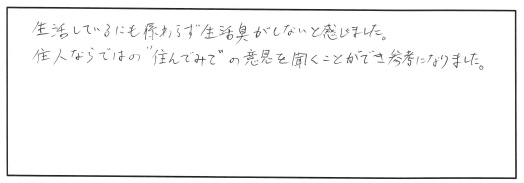 生活しているにも係わらず生活臭がしないと感じました。
住人ならではの"住んでみて"の意見を聞くことができ参考になりました。